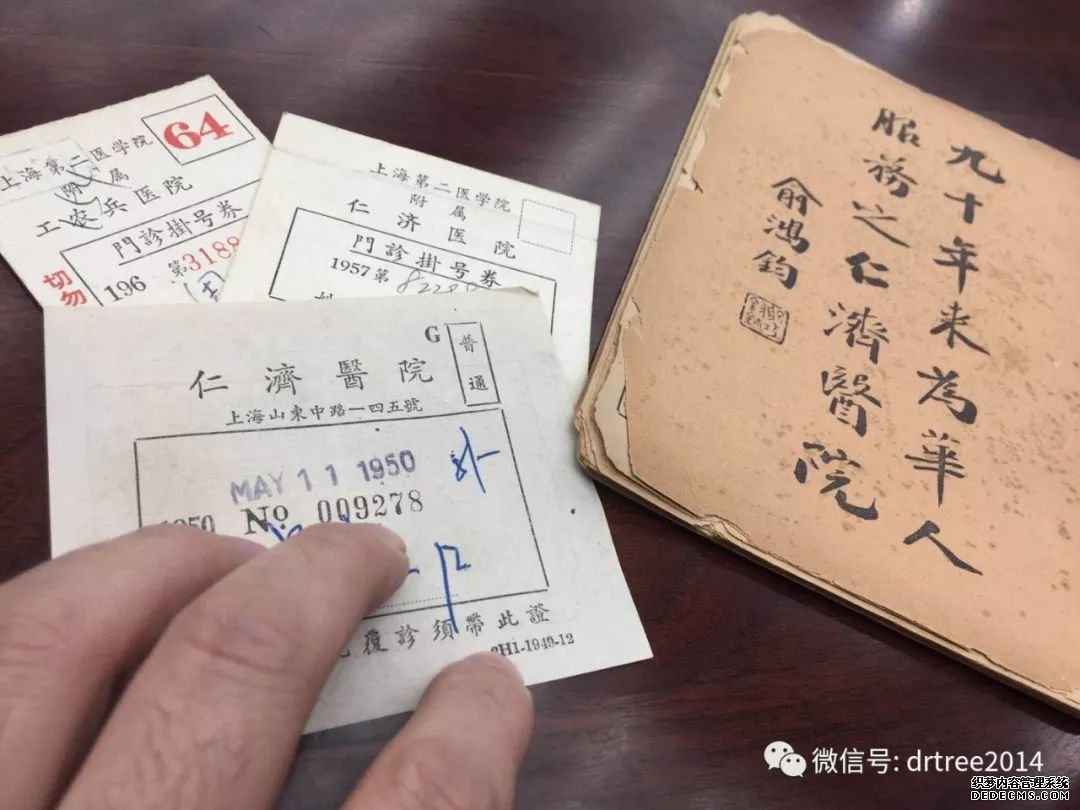 64
上海第二医学院
附属
工农兵医院
門診掛号券
196 第3188
切勿
上海第二医学院
附属
仁济医院
門診掛号券
1957 第
G
普通
仁濟醫院
上海山東中路一四五號
MAY 11 1950
1950 No. 009278
覆診須帶此證
HI-1949-12
九十年来為華人
服務之仁濟醫院
俞鴻鈞
微信号: drtree2014
织梦内容管理系统
DEDECMS.COM